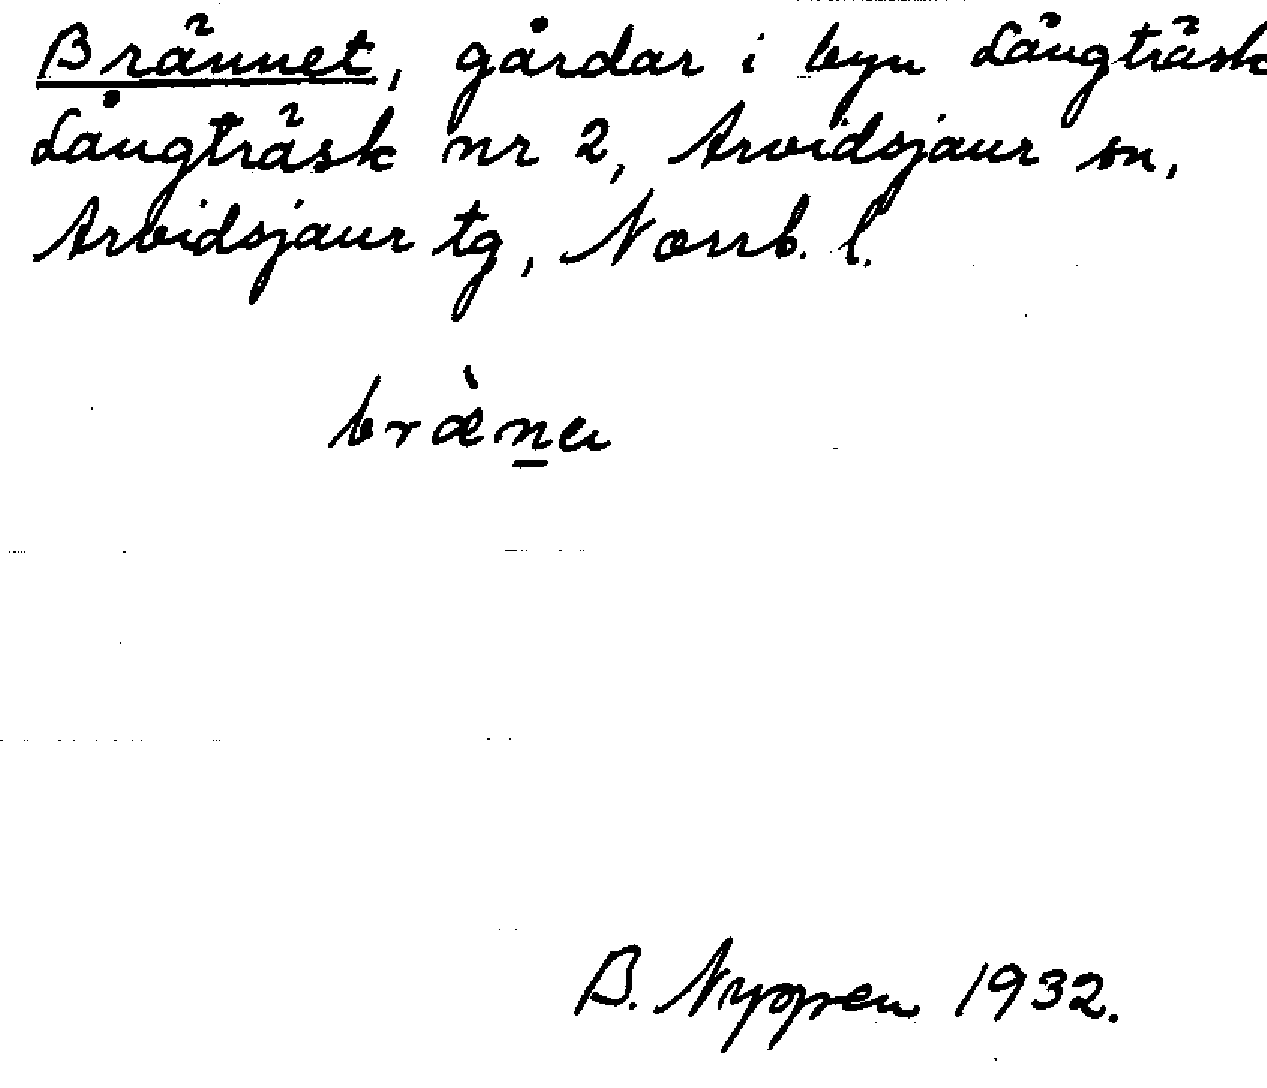 Brännet, gårdar i byn Långträsk
Långträsk nr 2, Arvidsjaur sn,
Arvidsjaur tg, Norrb. l.
bræ̀n̲a
B. Nygren 1932.